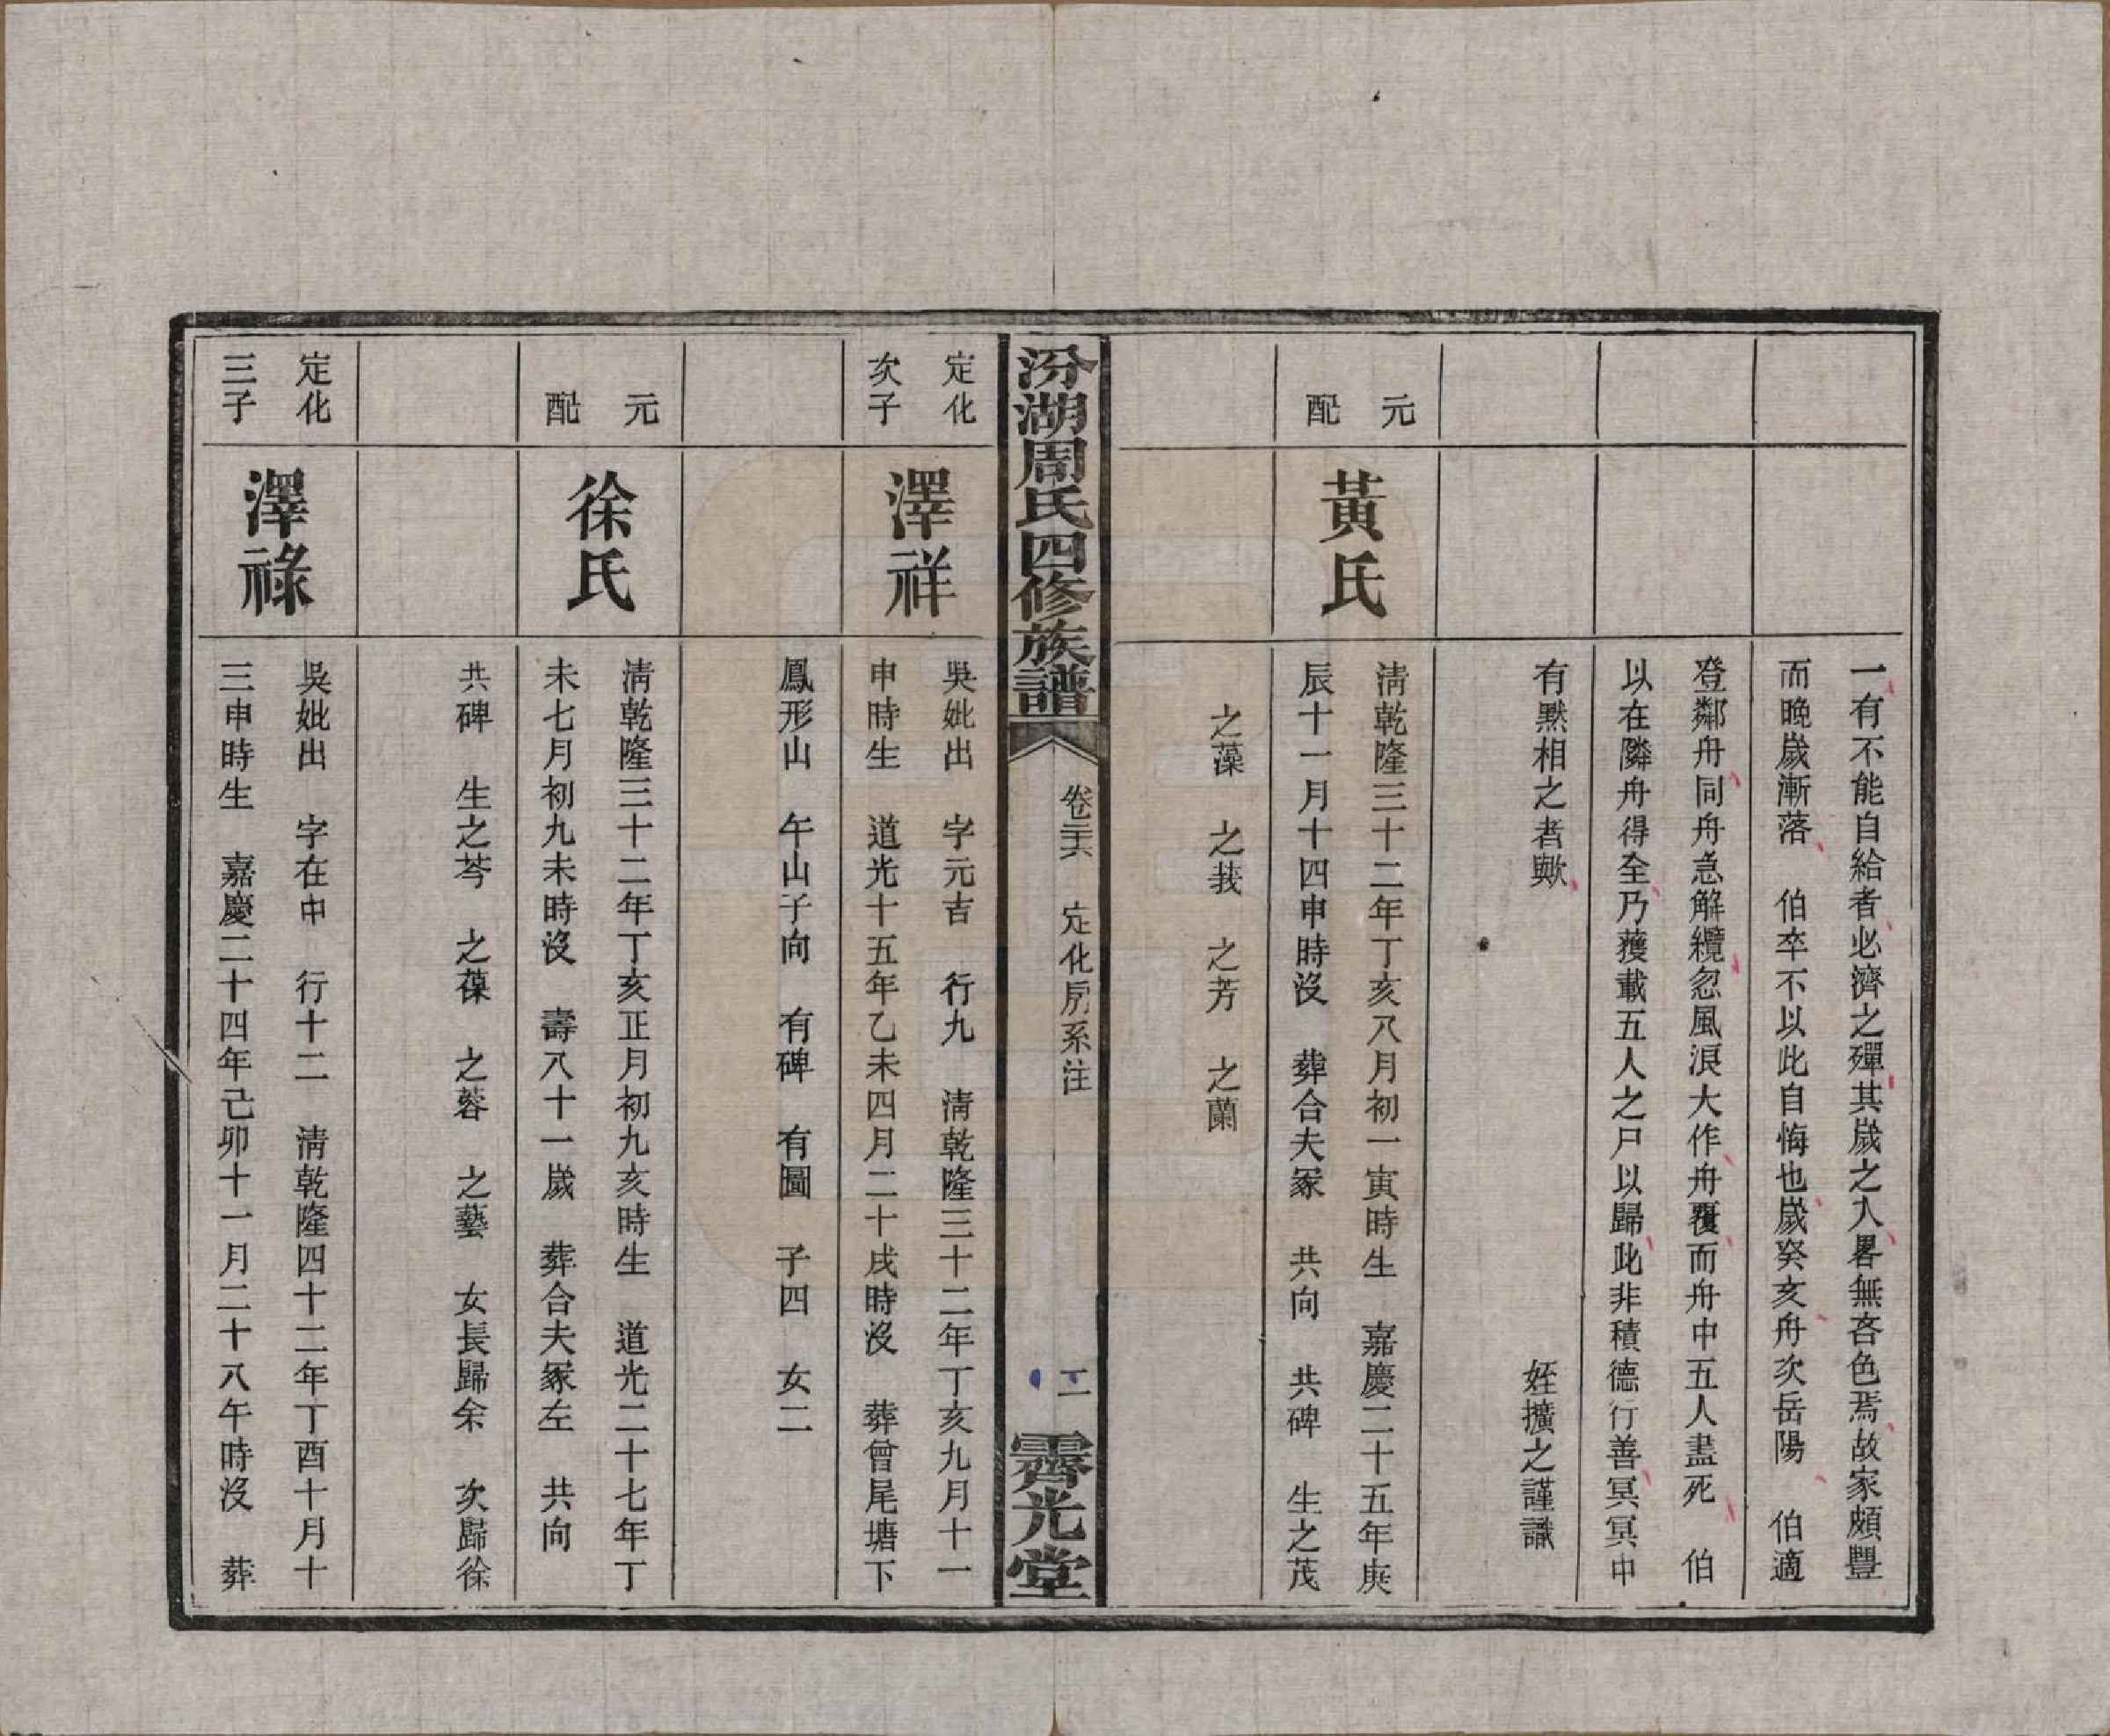 一有不能自給者必濟之殫其歲之入畧無吝色焉故家頗豐
而晚歲漸落 伯卒不以此自悔也歲癸亥舟次岳陽 伯適
登鄰舟同舟急解纜忽風浪大作舟覆而舟中五人盡死 伯
以在隣舟得全乃蒦載五人之尸以歸此非積德行善冥冥中
有默相之者歟 姪擴之謹識
元配
黃氏
清乾隆三十二年丁亥八月初一寅時生 嘉慶二十五年庚
辰十一月十四申時沒 葬合夫冢 共向 共碑 生之茂
之藻 之莪 之芳 之蘭
汾湖周氏四修族譜
卷三六 定化房系注
二
霽光堂
定化次子
澤祥
吳妣出 字元吉 行九 清乾隆三十二年丁亥九月十一
申時生 道光十五年乙未四月二十戌時沒 葬曾尾塘下
鳳形山 午山子向 有碑 有圖 子四 女二
元配
徐氏
清乾隆三十二年丁亥正月初九亥時生 道光二十七年丁
未七月初九未時沒 壽八十一歲 葬合夫冢左 共向
共碑 生之芩 之葆 之蓉 之藝 女長歸余 次歸徐
定化三子
澤祿
吳妣出 字在中 行十二 清乾隆四十二年丁酉十月十
三申時生 嘉慶二十四年己卯十一月二十八午時沒 葬